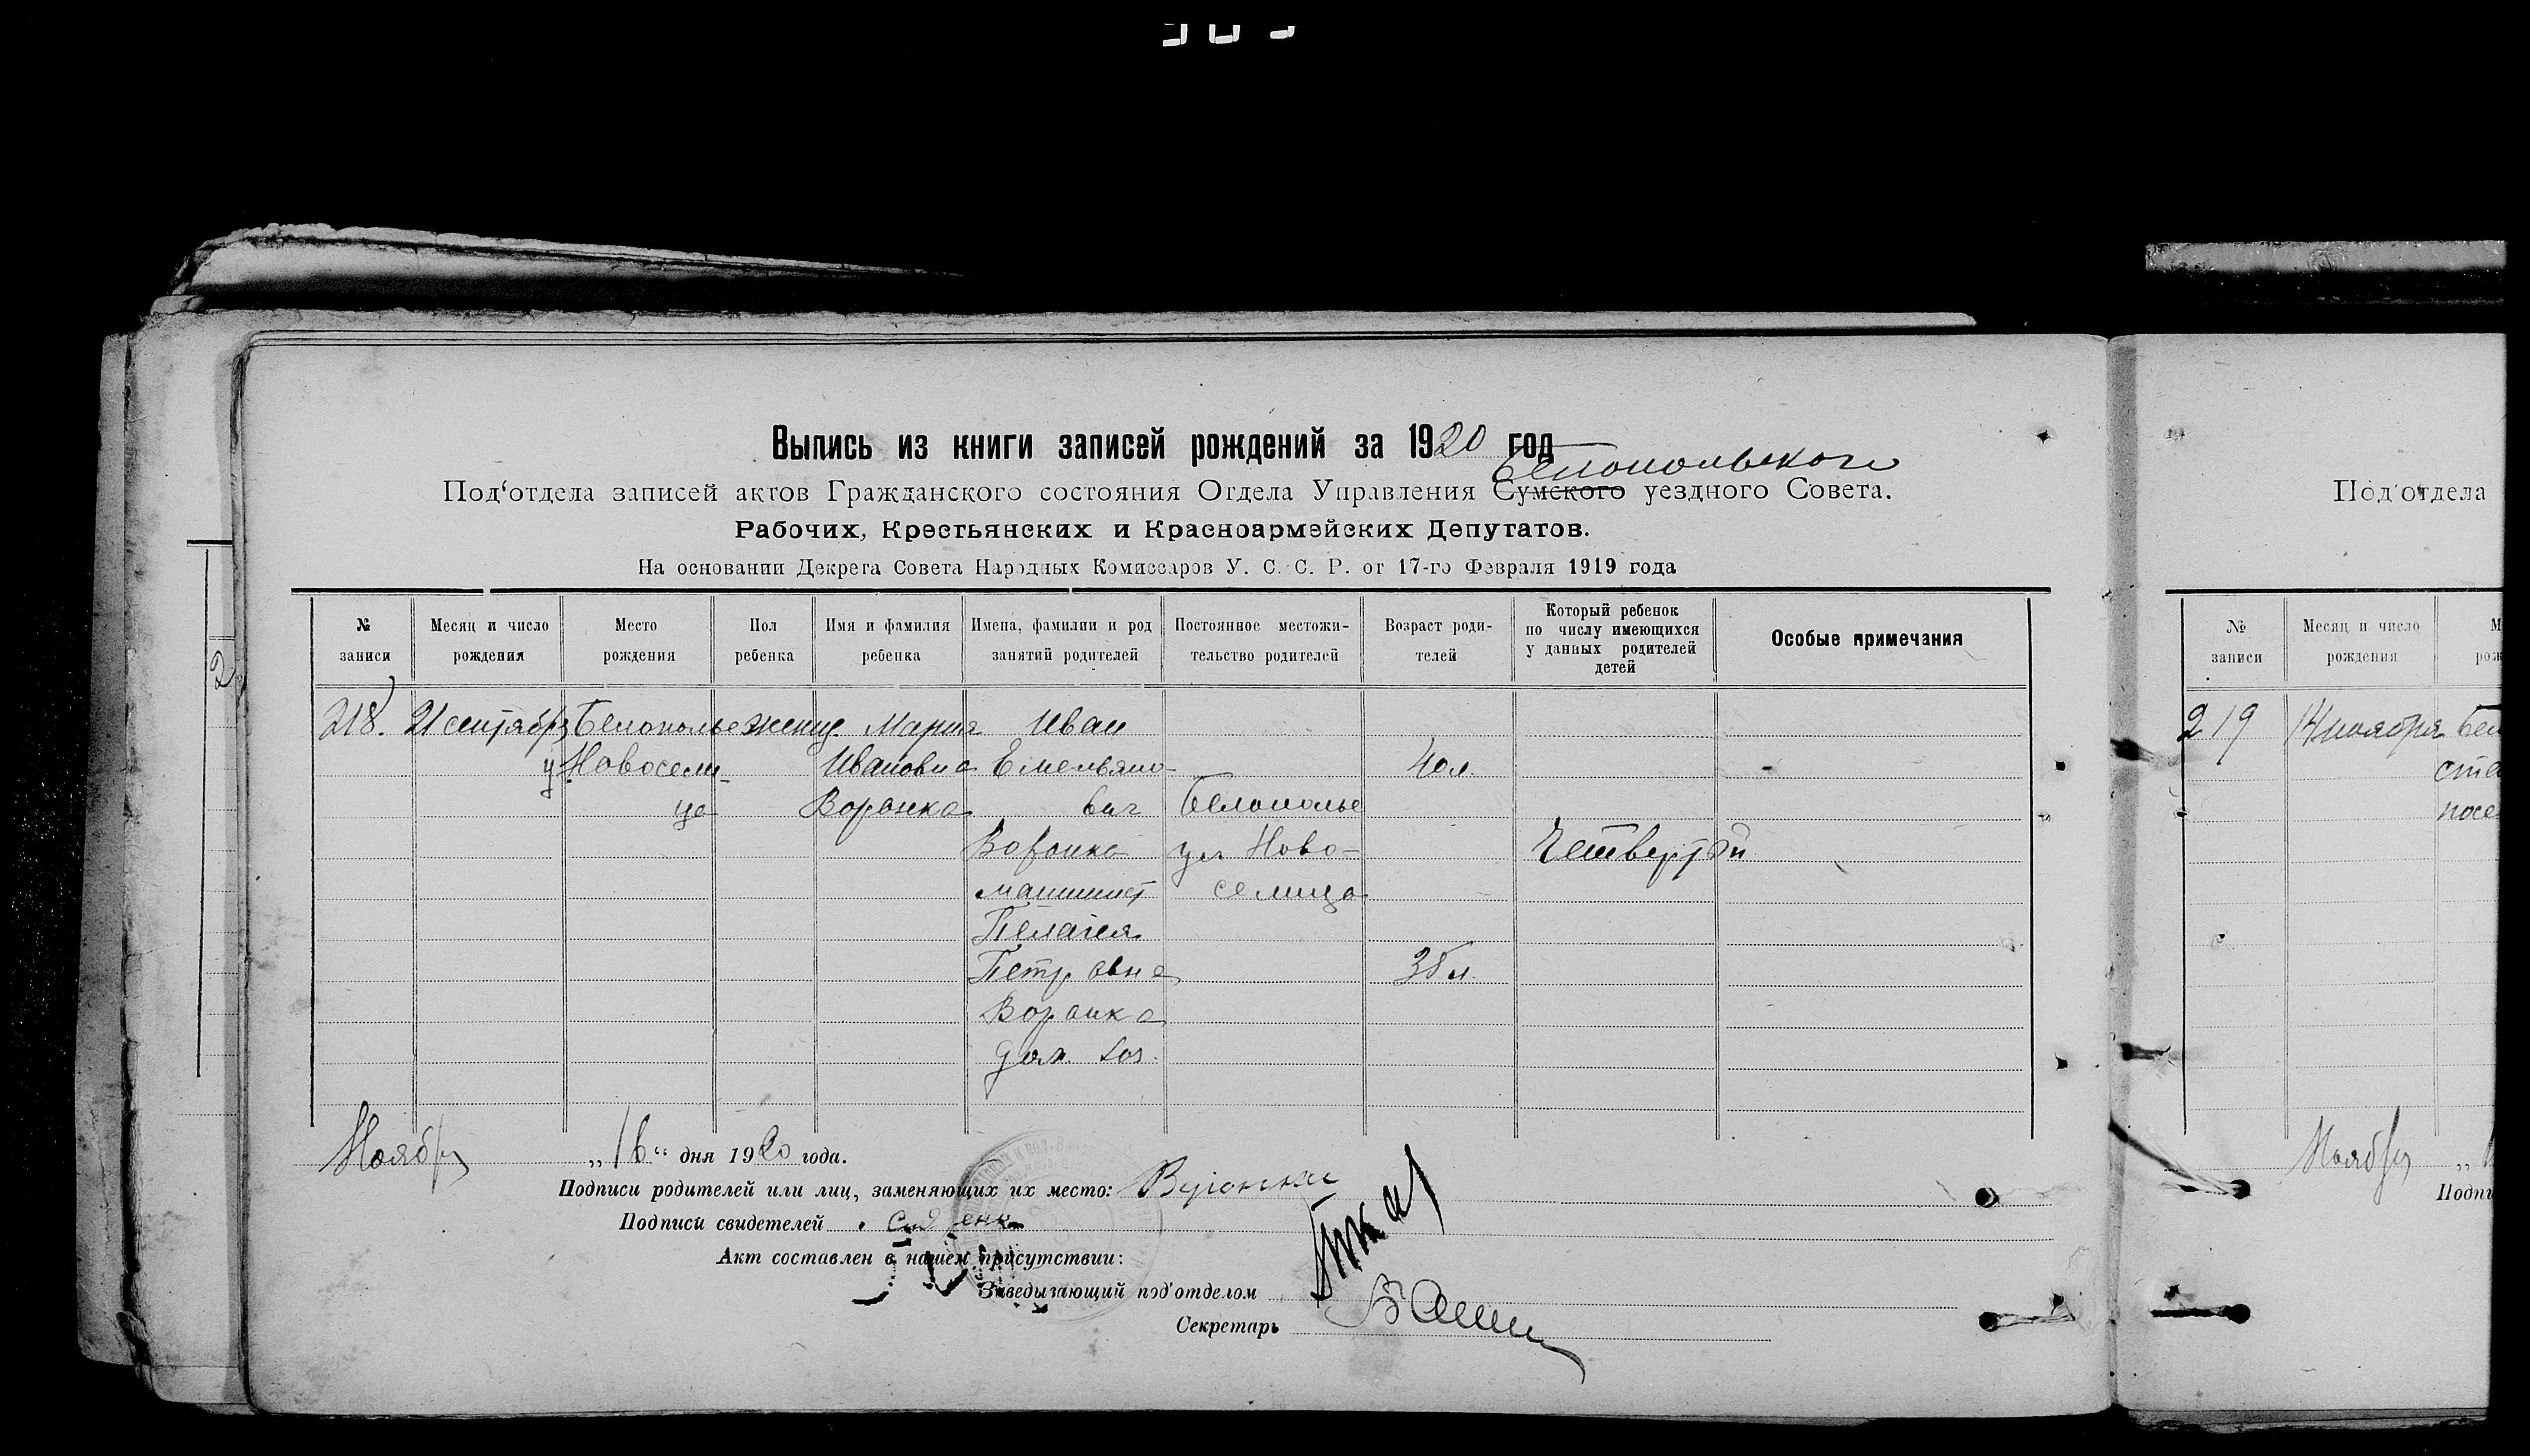 Выпись из книги записей рождений за 1920 год
Белопольского
Под‘отдела записей актов Гражданского состояния Отдела Управления Сумского уездного Совета.
Рабочих, Крестьянских и Красноармейских Депутатов.
На основании Декрета Совета Народных Комиссаров У. С. С. Р. от 17-го Февраля 1919 года
№ записи
Месяц и число рождения
Место рождения
Пол ребенка
Имя и фамилия ребенка
Имена, фамилии и род занятий родителей
Постоянное местожи-
тельство родителей
Возраст роди-
телей
Который ребенок
по числу имеющихся
у данных родителей
детей
Особые примечания
218. 21 сентября Белополье женщ. Мария Иван
у Новосели- Ивановна Емельяно- 40 л.
ца Воронка вич Белополье
Воронка ул Ново- Четвертый
машинист селица
Пелагея
Петровна 38 л.
Воронка
дом. хоз.
Ноября „16“ дня 1920 года.
Подписи родителей или лиц, заменяющих их место: Воронка
Подписи свидетелей
Акт составлен в нашем присутствии:
Заведывающий под'отделом
Секретарь
Под'отдела
№ записи
Месяц и число рождения
219 14 ноября Бел
ста
посе
Ноября „
Подпи